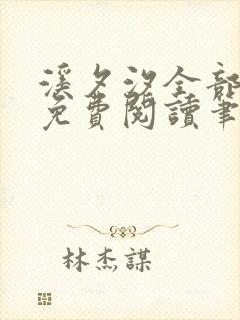 溪夕汐全部
免費閱讀筆
林杰謀